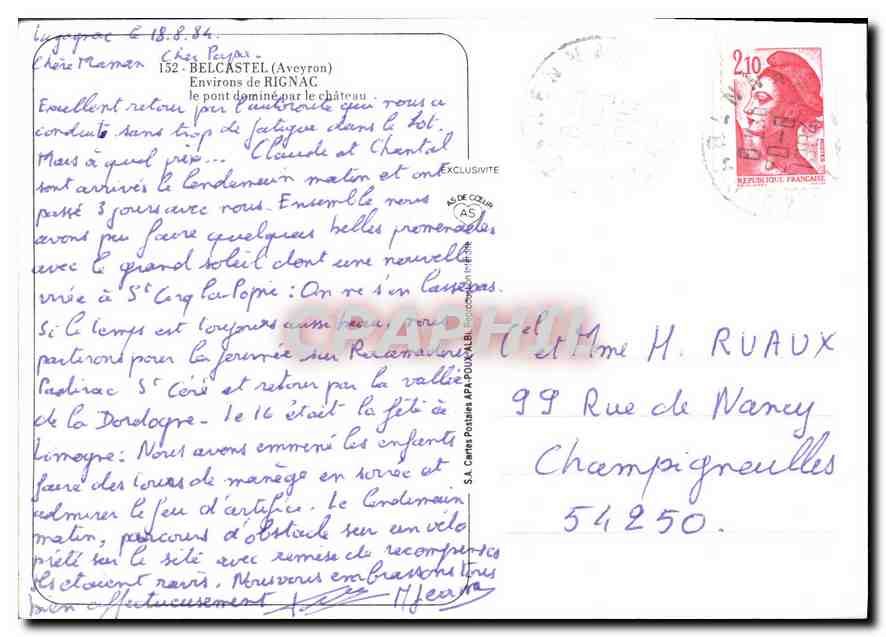 Lugagnac le 18.8.84.
Chère Maman Cher Papa.
152 - BELCASTEL (Aveyron)
Environs de RIGNAC
le pont dominé par le château
Excellent retour par l'autoroute qui nous a
conduits sans trop de fatigue dans le Lot.
Mais à quel prix... Claude et Chantal
sont arrivés le lendemain matin et ont
passé 3 jours avec nous. Ensemble nous
avons pu faire quelques belles promenades
avec le grand soleil dont une nouvelle
virée à St Cirq Lapopie : On ne s'en lasse pas.
Si le temps est toujours aussi beau, nous
partirons pour la journée sur Rocamadour
Padirac St Céré et retour par la vallée
de la Dordogne - Le 16 était la fête à
Limogne : Nous avons emmené les enfants
faire des tours de manège en soirée et
admirer le feu d'artifice. Le lendemain
matin, parcours d'obstacle sur un vélo
prêté sur le site avec remise de récompenses
ils étaient ravis. Nous vous embrassons tous
bien affectueusement
EXCLUSIVITE
AS DE CŒUR
AS
S.A. Cartes Postales APA-POUX, ALBI. Reproduction interdite
CPAPHIL
2,10
REPUBLIQUE FRANÇAISE
Cel et Mme H. RUAUX
99 Rue de Nancy
Champigneulles
54250.